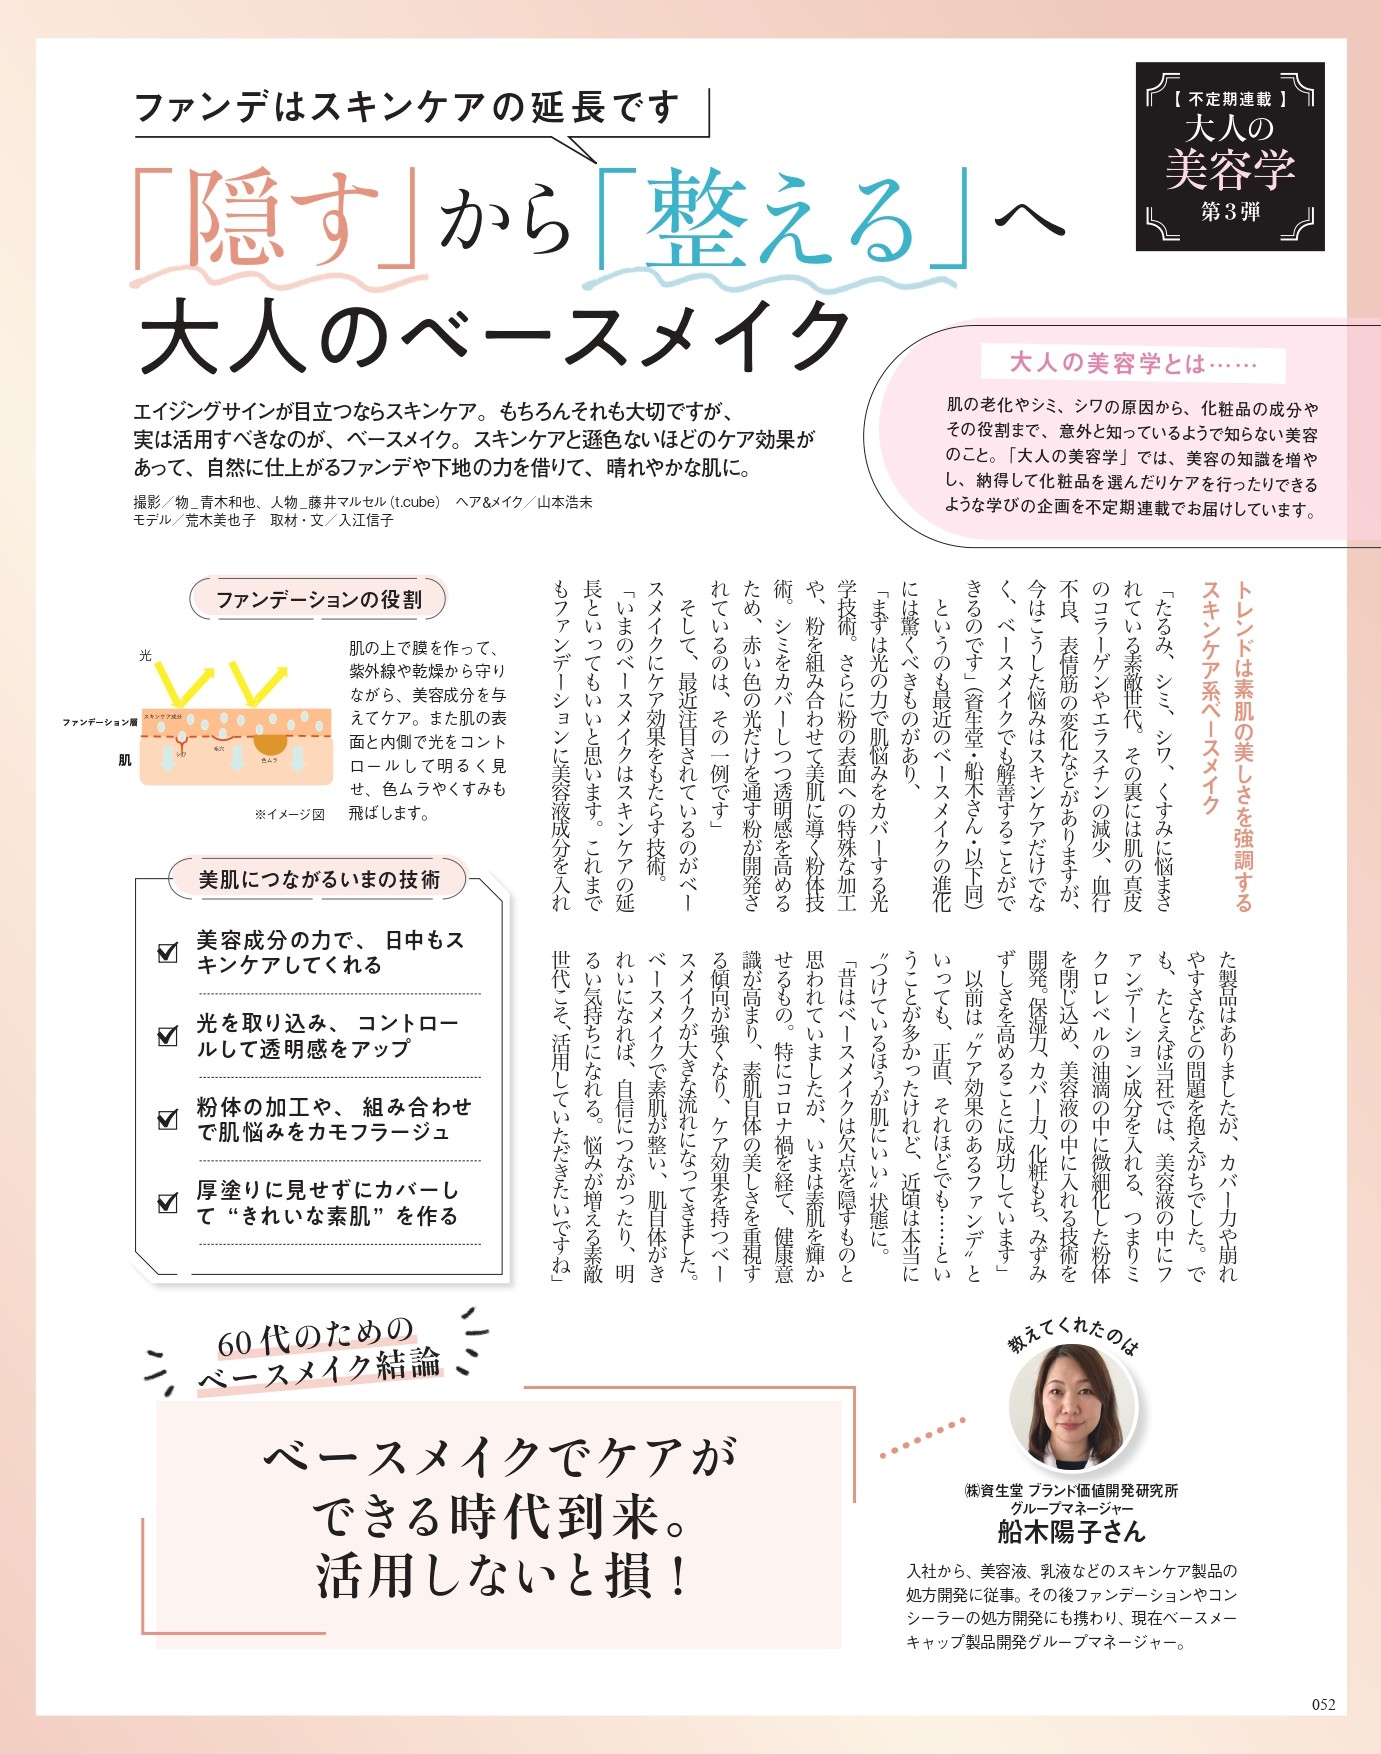 ファンデはスキンケアの延長です
「隠す」から「整える」へ
大人のベースメイク
【 不定期連載 】
大人の
美容学
第3弾
エイジングサインが目立つならスキンケア。もちろんそれも大切ですが、
実は活用すべきなのが、ベースメイク。スキンケアと遜色ないほどのケア効果が
あって、自然に仕上がるファンデや下地の力を借りて、晴れやかな肌に。
撮影／物_青木和也、人物_藤井マルセル(t.cube)　ヘア&メイク／山本浩未
モデル／荒木美也子　取材・文／入江信子
大人の美容学とは……
肌の老化やシミ、シワの原因から、化粧品の成分や
その役割まで、意外と知っているようで知らない美容
のこと。「大人の美容学」では、美容の知識を増や
し、納得して化粧品を選んだりケアを行ったりできる
ような学びの企画を不定期連載でお届けしています。
トレンドは素肌の美しさを強調する
スキンケア系ベースメイク
「たるみ、シミ、シワ、くすみに悩まさ
れている素敵世代。その裏には肌の真皮
のコラーゲンやエラスチンの減少、血行
不良、表情筋の変化などがありますが、
今はこうした悩みはスキンケアだけでな
く、ベースメイクでも解善することがで
きるのです」（資生堂・船木さん・以下同）
というのも最近のベースメイクの進化
には驚くべきものがあり、
「まずは光の力で肌悩みをカバーする光
学技術。さらに粉の表面への特殊な加工
や、粉を組み合わせて美肌に導く粉体技
術。シミをカバーしつつ透明感を高める
ため、赤い色の光だけを通す粉が開発さ
れているのは、その一例です」
そして、最近注目されているのがベー
スメイクにケア効果をもたらす技術。
「いまのベースメイクはスキンケアの延
長といってもいいと思います。これまで
もファンデーションに美容液成分を入れ
た製品はありましたが、カバー力や崩れ
やすさなどの問題を抱えがちでした。で
も、たとえば当社では、美容液の中にフ
ァンデーション成分を入れる、つまりミ
クロレベルの油滴の中に微細化した粉体
を閉じ込め、美容液の中に入れる技術を
開発。保湿力、カバー力、化粧もち、みずみ
ずしさを高めることに成功しています」
以前は〝ケア効果のあるファンデ〟と
いっても、正直、それほどでも……とい
うことが多かったけれど、近頃は本当に
〝つけているほうが肌にいい〟状態に。
「昔はベースメイクは欠点を隠すものと
思われていましたが、いまは素肌を輝か
せるもの。特にコロナ禍を経て、健康意
識が高まり、素肌自体の美しさを重視す
る傾向が強くなり、ケア効果を持つベー
スメイクが大きな流れになってきました。
ベースメイクで素肌が整い、肌自体がき
れいになれば、自信につながったり、明
るい気持ちになれる。悩みが増える素敵
世代こそ、活用していただきたいですね」
ファンデーションの役割
光
ファンデーション層
スキンケア成分
シワ
毛穴
色ムラ
肌
※イメージ図
肌の上で膜を作って、
紫外線や乾燥から守り
ながら、美容成分を与
えてケア。また肌の表
面と内側で光をコント
ロールして明るく見
せ、色ムラやくすみも
飛ばします。
美肌につながるいまの技術
美容成分の力で、 日中もス
キンケアしてくれる
光を取り込み、 コントロー
ルして透明感をアップ
粉体の加工や、 組み合わせ
で肌悩みをカモフラージュ
厚塗りに見せずにカバーし
て “きれいな素肌” を作る
60代のための
ベースメイク結論
ベースメイクでケアが
できる時代到来。
活用しないと損！
教えてくれたのは
㈱資生堂 ブランド価値開発研究所
グループマネージャー
船木陽子さん
入社から、美容液、乳液などのスキンケア製品の
処方開発に従事。その後ファンデーションやコン
シーラーの処方開発にも携わり、現在ベースメー
キャップ製品開発グループマネージャー。
052